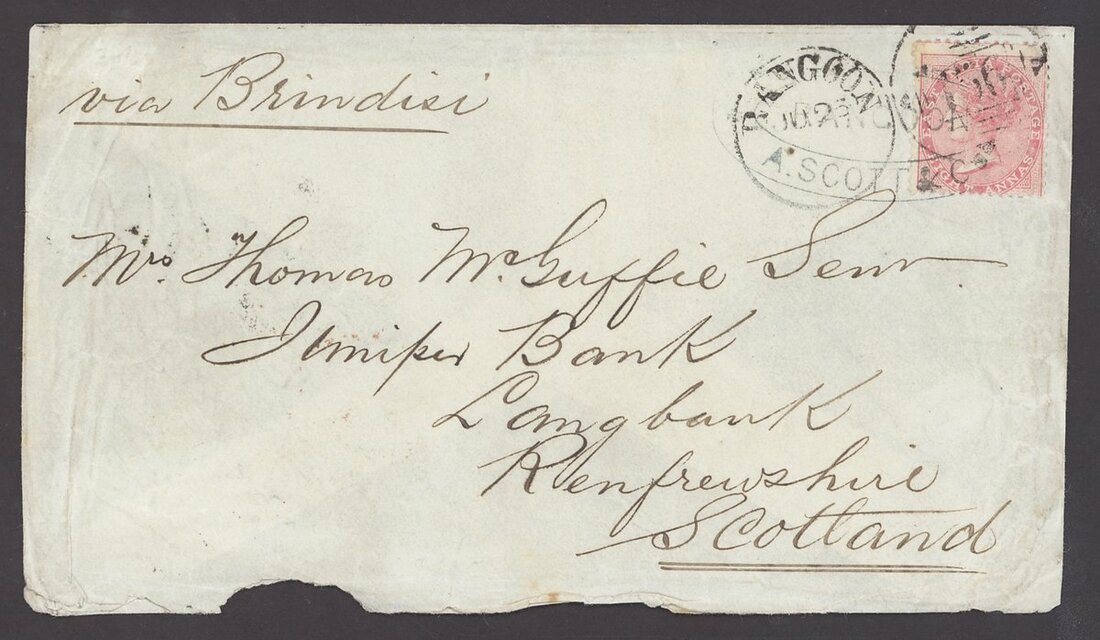 via Brindisi
RANGOON
A. SCOTT & Co
EIGHT ANNAS
Mrs. Thomas McGuffie Senr
Juniper Bank
Langbank
Renfrewshire
Scotland